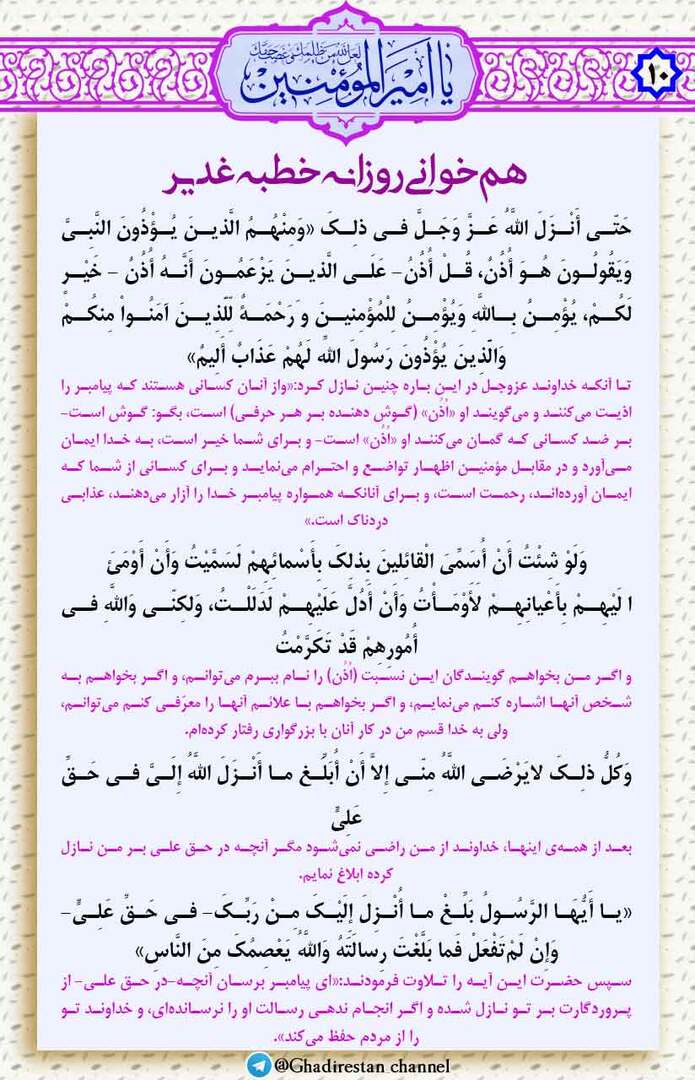 ۱۰
لعن الله من ظلمک و غصب حقک
یا امیرالمؤمنین
هم خوانی روزانه خطبه غدیر
حَتّی أَنْزَلَ اللَّهُ عَزَّ وَجَلَّ فی ذلِکَ «وَمِنْهُمُ الَّذینَ یُؤْذُونَ النَّبِیَّ
وَیَقُولُونَ هُوَ أُذُنٌ، قُلْ أُذُنُ– عَلَی الَّذینَ یَزْعَمُونَ أَنَّهُ أُذُنٌ – خَیْرٍ
لَکُمْ، یُؤْمِنُ بِاللَّهِ وَیُؤْمِنُ لِلْمُؤْمِنینَ وَ رَحْمَةٌ لِلَّذینَ آمَنُواْ مِنکُمْ
وَالَّذِینَ یُؤْذُونَ رَسُولَ اللَّهِ لَهُمْ عَذَابٌ أَلِیمٌ»
تا آنکه خداوند عزوجل در این باره چنین نازل کرد:«واز آنان کسانی هستند که پیامبر را
اذیت می‌کنند و می‌گویند او «اُذُن» (گوش دهنده بر هر حرفی) است، بگو: گوش است–
بر ضد کسانی که گمان می‌کنند او «اُذُن» است– و برای شما خیر است، به خدا ایمان
می‌آورد و در مقابل مؤمنین اظهار تواضع و احترام می‌نماید و برای کسانی از شما که
ایمان آورده‌اند، رحمت است، و برای آنانکه همواره پیامبر خدا را آزار می‌دهند، عذابی
دردناک است.»
وَلَوْ شِئْتُ أَنْ أُسَمِّیَ الْقائِلینَ بِذلِکَ بِأَسْمائِهِمْ لَسَمَّیْتُ وَأَنْ أُوْمِئَ
ا لَیْهِمْ بِأَعْیانِهِمْ لَأَوْمَأْتُ وَأَنْ أَدُلَّ عَلَیْهِمْ لَدَلَلْتُ، وَلکِنّی وَاللَّهِ فی
أُمُورِهِمْ قَدْ تَکَرَّمْتُ
و اگر من بخواهم گویندگان این نسبت (اُذُن) را نام ببرم می‌توانم، و اگر بخواهم به
شخص آنها اشاره کنم می‌نمایم، و اگر بخواهم با علائم آنها را معرّفی کنم می‌توانم،
ولی به خدا قسم من در کار آنان با بزرگواری رفتار کرده‌ام.
وَکُلُّ ذلِکَ لایَرْضَی اللَّهُ مِنّی إِلاَّ أَنْ أُبَلِّغَ ما أَنْزَلَ اللَّهُ إِلَیَّ فی حَقِّ
عَلِیٍّ
بعد از همه‌ی اینها، خداوند از من راضی نمی‌شود مگر آنچه در حق علی بر من نازل
کرده ابلاغ نمایم.
«یا أَیُّهَا الرَّسُولُ بَلِّغْ ما أُنْزِلَ إِلَیْکَ مِنْ رَبِّکَ– فی حَقِّ عَلِیٍّ–
وَإِنْ لَمْ تَفْعَلْ فَما بَلَّغْتَ رِسالَتَهُ وَاللَّهُ یَعْصِمُکَ مِنَ النَّاسِ»
سپس حضرت این آیه را تلاوت فرمودند:«ای پیامبر برسان آنچه–در حق علی– از
پروردگارت بر تو نازل شده و اگر انجام ندهی رسالت او را نرسانده‌ای، و خداوند تو
را از مردم حفظ می‌کند».
@Ghadirestan channel